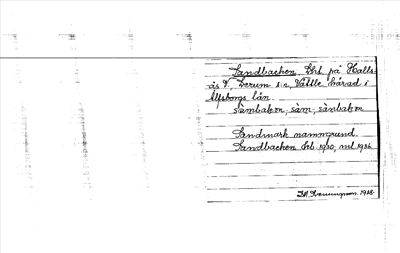 Sandbacken, lht på Halls-
ås 2, Lerum sn, Vättle härad i
Älfsborgs län
sambaken, sàm-, sànbaken
Sandmark namngrund.
Sandbacken lht 1930, mtl 1936
1938.